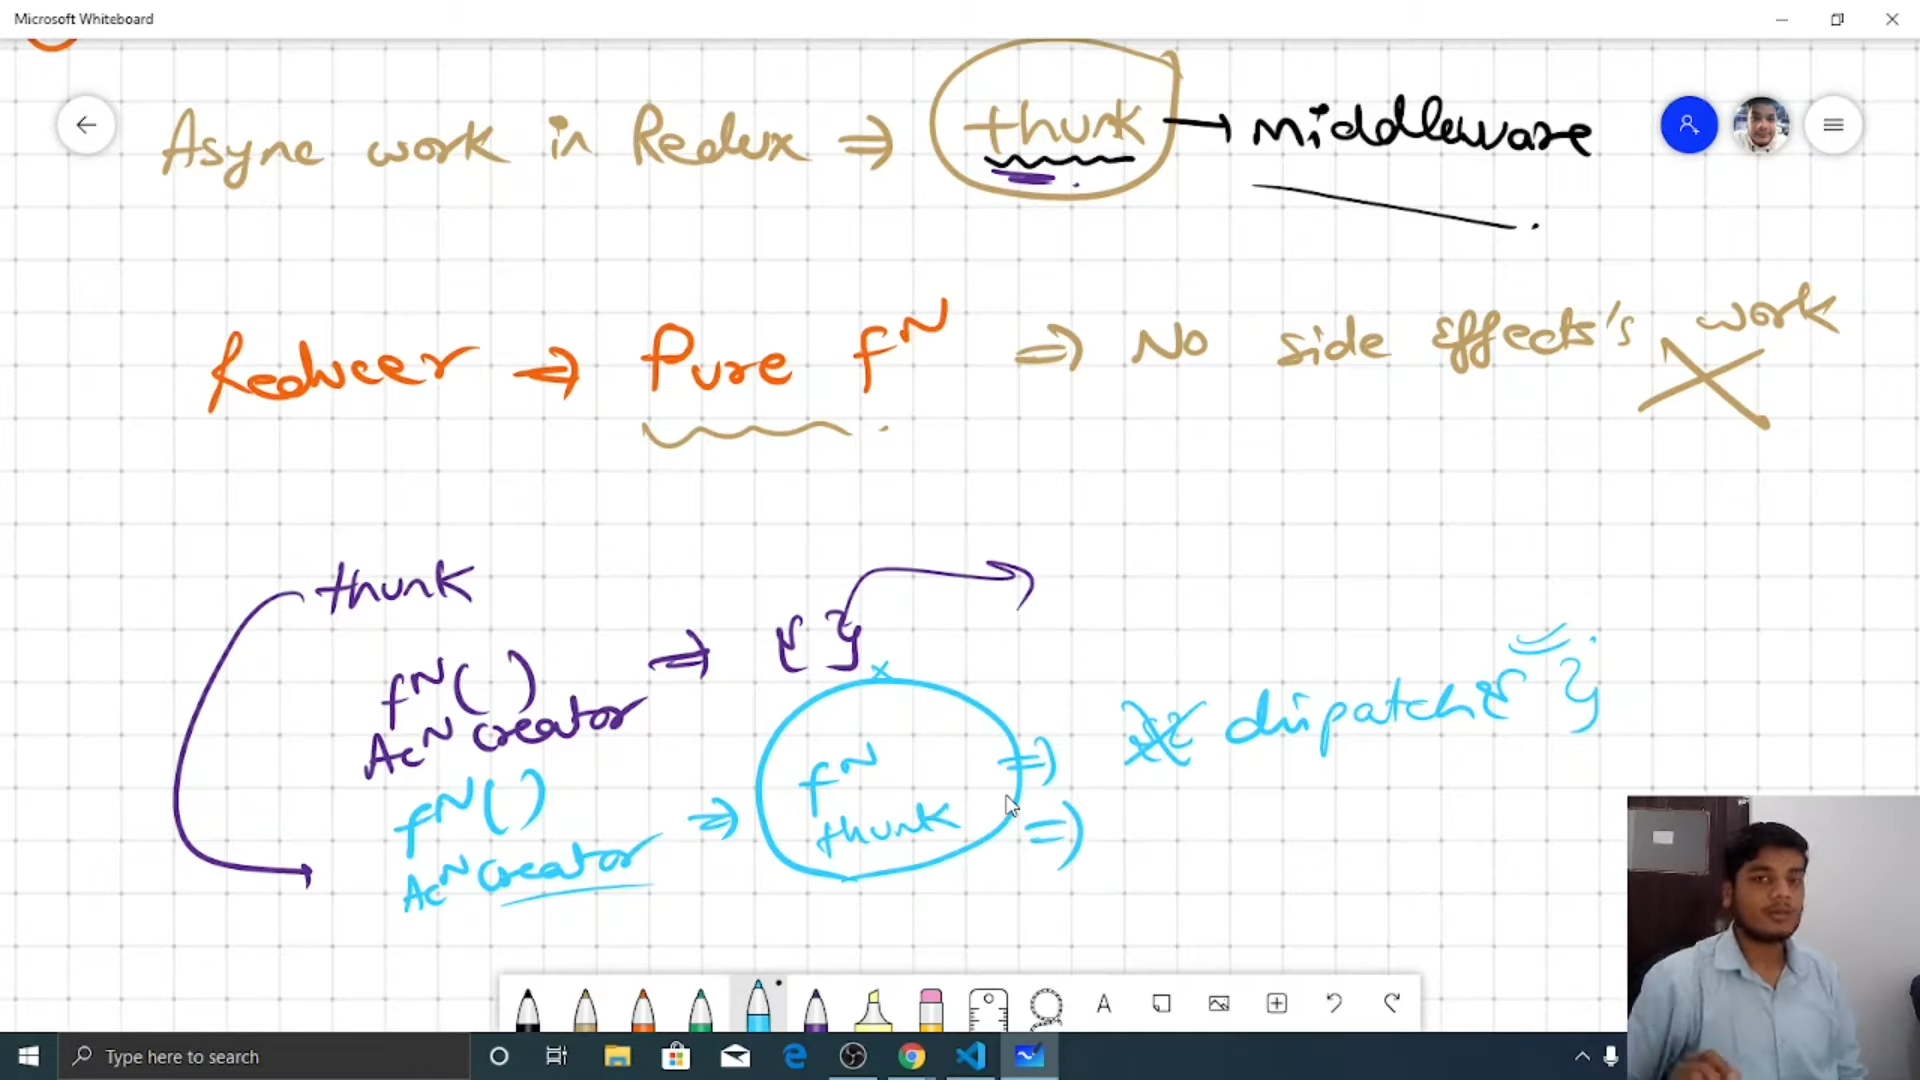 Microsoft Whiteboard
Async work in Redux ⇒ thunk → middleware
Reducer ⇒ Pure fN ⇒ No side effects's work
thunk
fN() ⇒ { }
AcN creator
fN() ⇒ fN thunk ⇒ dispatch { }
AcN creator ⇒
A
Type here to search